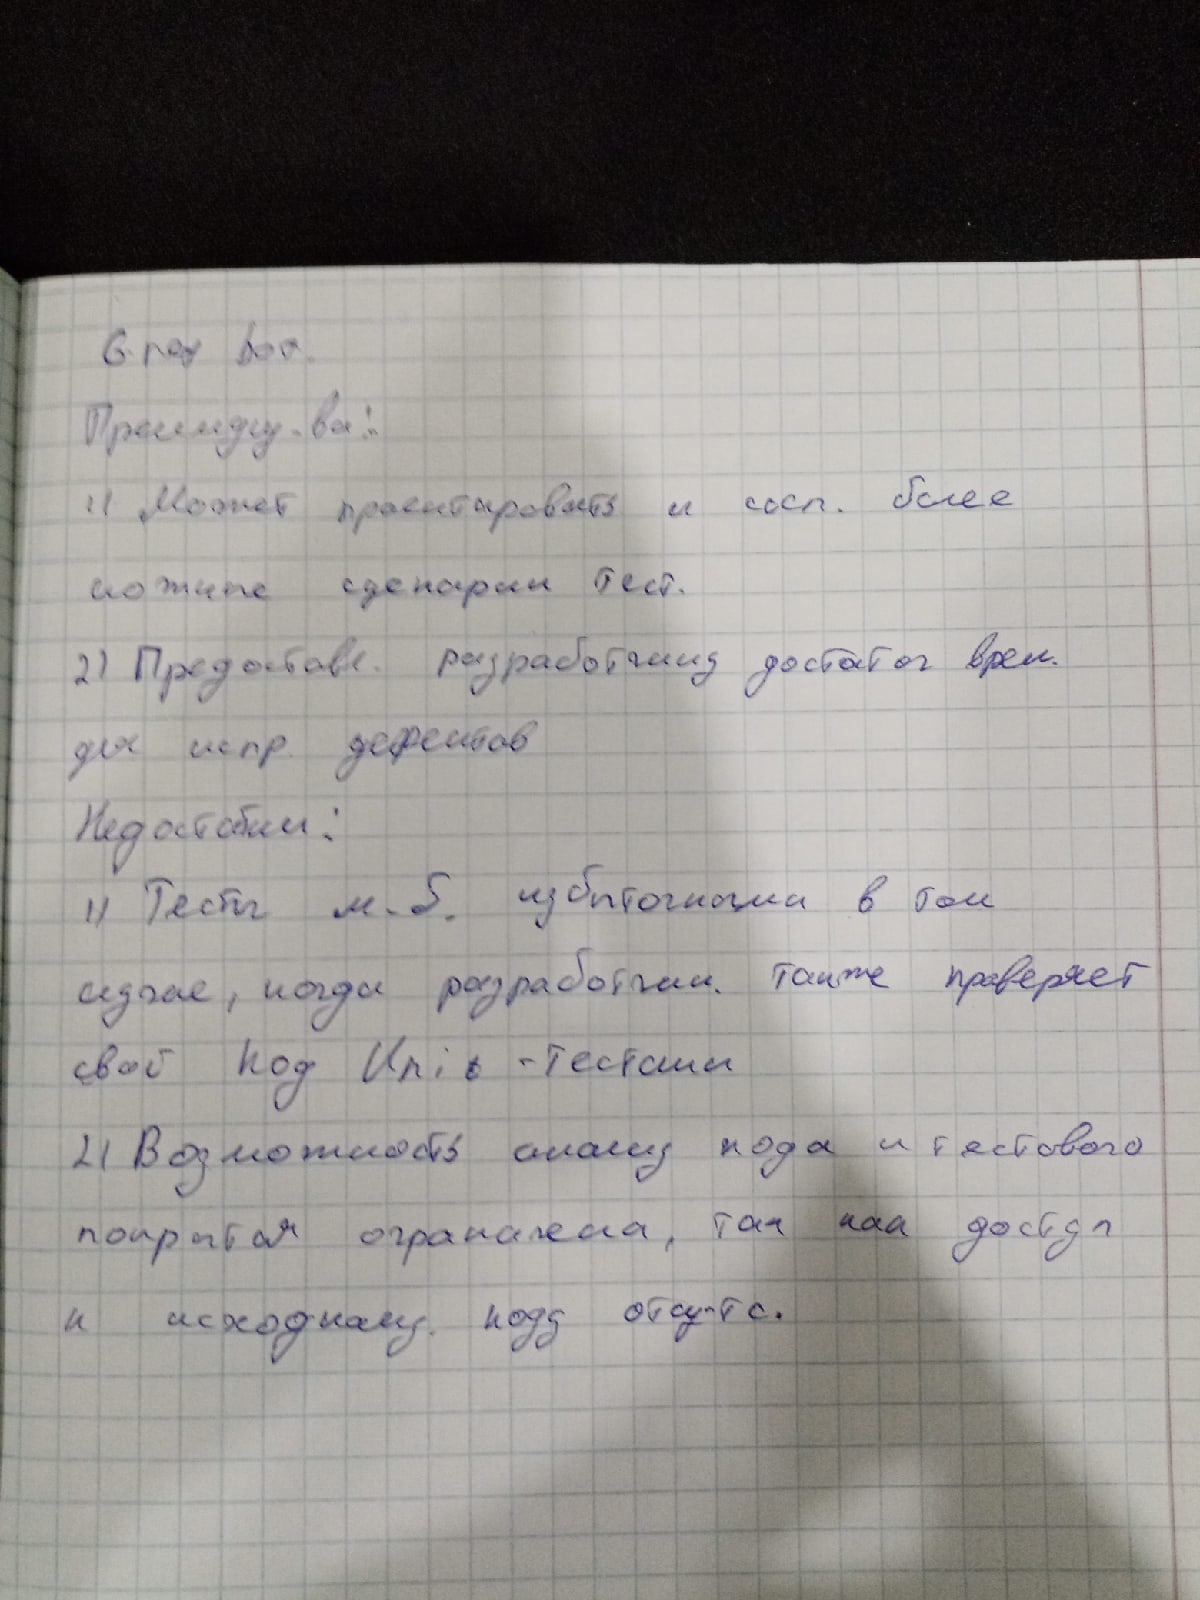 Grey box.
Преимущ-ва:
1) Может проектировать и иссл. более
сложные сценарии тест.
2) Предоставл. разработчику достаточ врем.
для испр. дефектов
Недостатки:
1) Тесты м.б. избыточными в том
случае, когда разработчик. также проверяет
свой код Unit-тестами
2) Возможность анализу кода и тестового
покрытия ограничена, так как доступ
к исходному. коду отсу-тс.